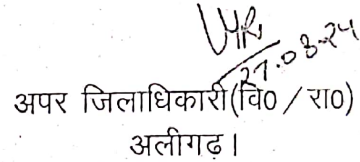 27.03.24
अपर जिलाधिकारी(वि0 / रा0)
अलीगढ़।